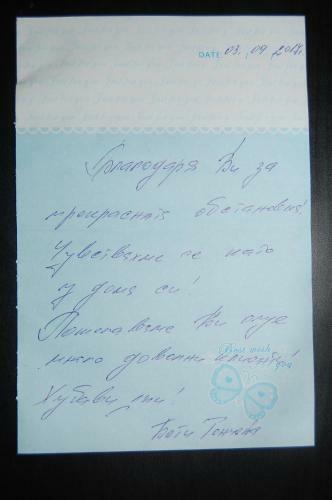 DATE: 03.09 2017г.
Благодаря Ви за
прекрасната обстановка!
Чувствахме се като
у дома си!
Пожелаваме Ви още
много доволни клиенти!
Best wish
for you
Хубави дни!